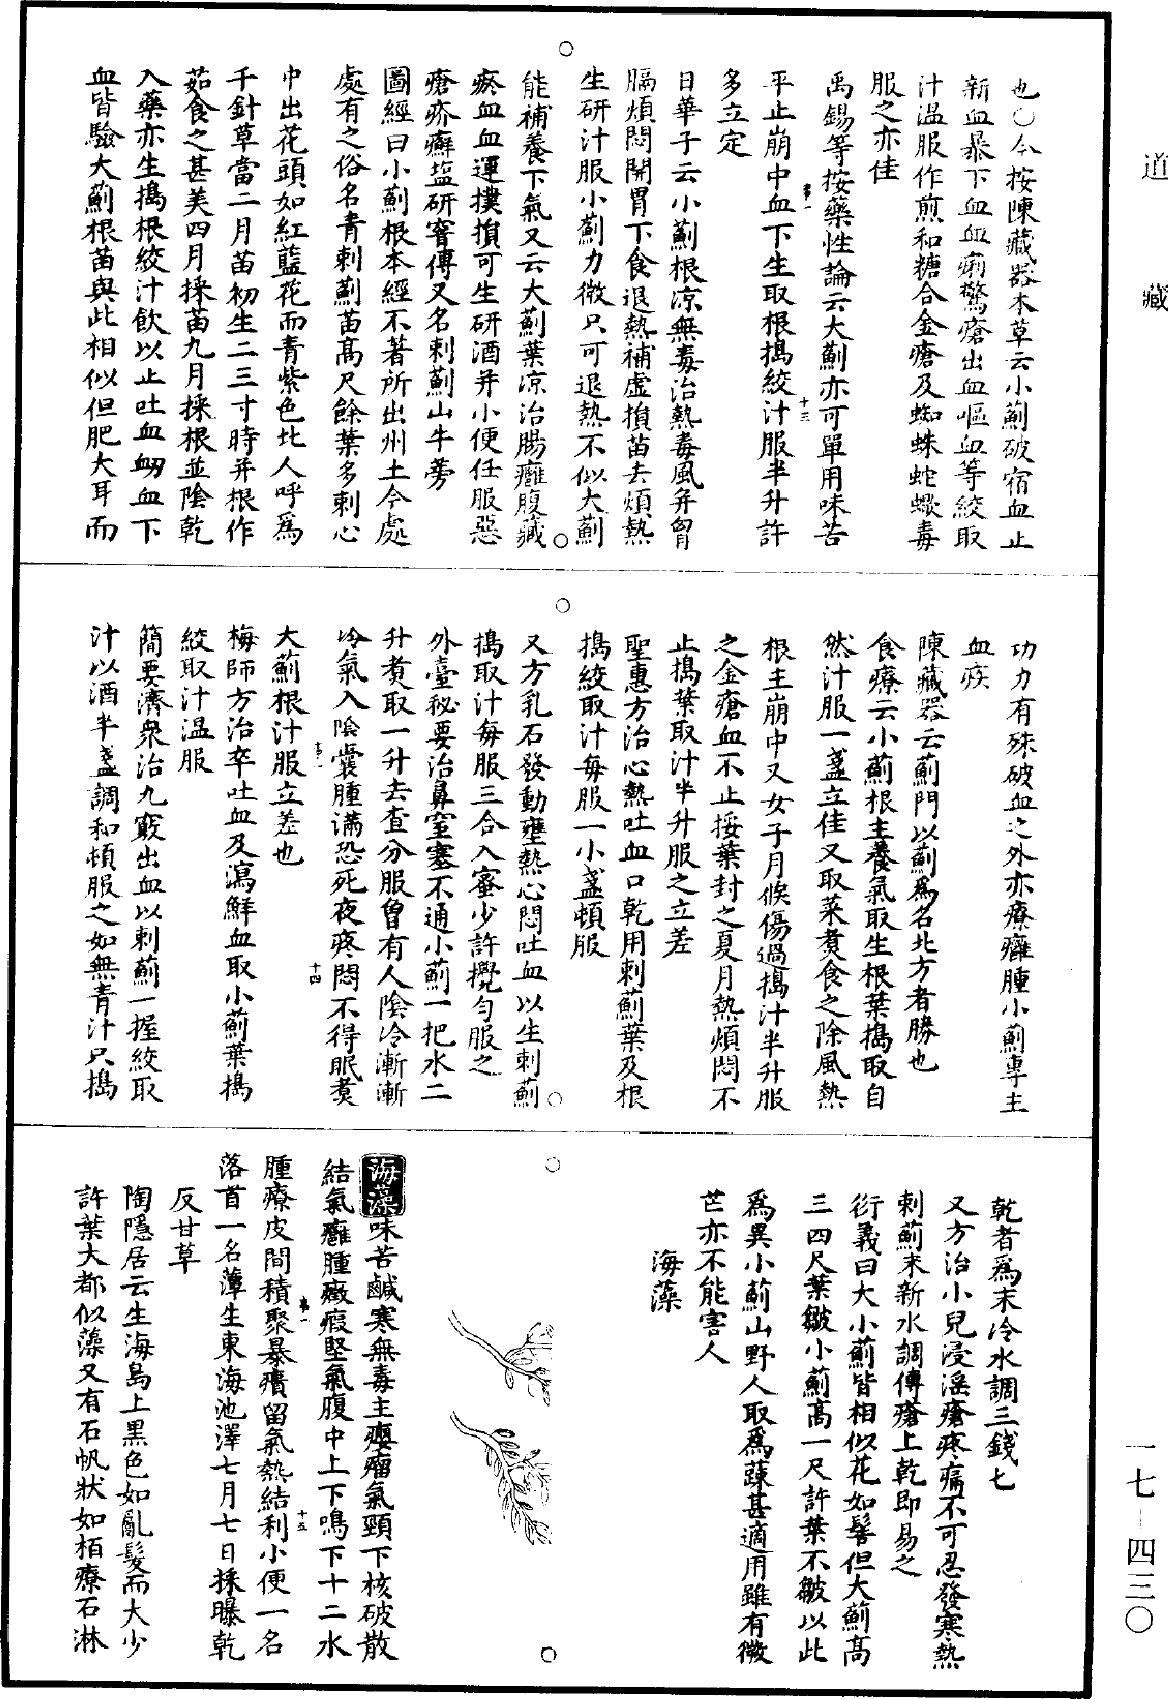 道藏
也○今按陳藏器本草云小薊破宿血止
新血暴下血血痢驚瘡出血嘔血等絞取
汁温服作煎和糖合金瘡及蜘蛛蛇蠍毒
服之亦佳
禹錫等按藥性論云大薊亦可單用味苦
平止崩中血下生取根搗絞汁服半升許
多立定
日華子云小薊根凉無毒治熱毒風并胷
膈煩悶開胃下食退熱補虛損苗去煩熱
生研汁服小薊力微只可退熱不似大薊
能補養下氣又云大薊葉凉治腸癰腹藏
瘀血血運撲損可生研酒并小便任服惡
瘡疥癬盐研窨傅又名刺薊山牛蒡
圖經曰小薊根本經不著所出州土今處
處有之俗名青刺薊苗髙尺餘葉多刺心
中出花頭如紅藍花而青紫色北人呼為
千針草當二月苗初生二三寸時并根作
茹食之甚美四月採苗九月採根並陰乾
入藥亦生搗根絞汁飲以止吐血衂血下
血皆驗大薊根苗與此相似但肥大耳而
功力有殊破血之外亦療癰腫小薊專主
血疾
陳藏器云薊門以薊為名北方者勝也
食療云小薊根主養氣取生根葉搗取自
然汁服一盞立佳又取菜煮食之除風熱
根主崩中又女子月候傷過搗汁半升服
之金瘡血不止挼葉封之夏月熱煩悶不
止搗葉取汁半升服之立差
聖惠方治心熱吐血口乾用刺薊葉及根
搗絞取汁每服一小盞頓服
又方乳石發動壅熱心悶吐血以生刺薊
搗取汁每服三合入蜜少許攪匀服之
外臺秘要治鼻窒塞不通小薊一把水二
升煮取一升去查分服曾有人陰冷漸漸
冷氣入陰囊腫滿恐死夜疼悶不得眠煮
大薊根汁服立差也
梅師方治卒吐血及瀉鮮血取小薊葉搗
絞取汁温服
簡要濟衆治九竅出血以刺薊一握絞取
汁以酒半盞調和頓服之如無青汁只搗
乾者為末冷水調三錢匕
又方治小兒浸淫瘡疼痛不可忍發寒熱
刺薊末新水調傅瘡上乾即易之
衍義曰大小薊皆相似花如髻但大薊髙
三四尺葉皺小薊髙一尺許葉不皺以此
為異小薊山野人取為蔬甚適用雖有微
芒亦不能害人
海藻
海藻味苦鹹寒無毒主癭瘤氣頸下核破散
結氣癰腫癥瘕堅氣腹中上下鳴下十二水
腫療皮間積聚暴㿉留氣熱結利小便一名
落首一名藫生東海池澤七月七日採曝乾
反甘草
陶隱居云生海島上黑色如亂髮而大少
許葉大都似藻又有石帆狀如栢療石淋
一七—四三〇